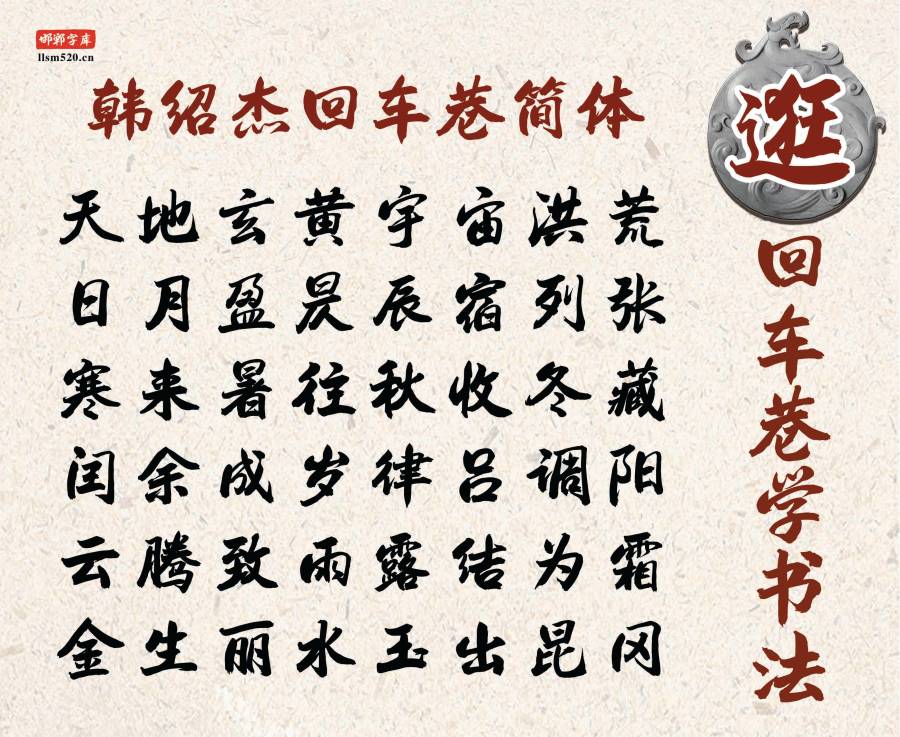 邯郸字库
llsm520.cn
韩绍杰回车巷简体
天地玄黄宇宙洪荒
日月盈昃辰宿列张
寒来暑往秋收冬藏
闰余成岁律吕调阳
云腾致雨露结为霜
金生丽水玉出昆冈
逛回车巷学书法